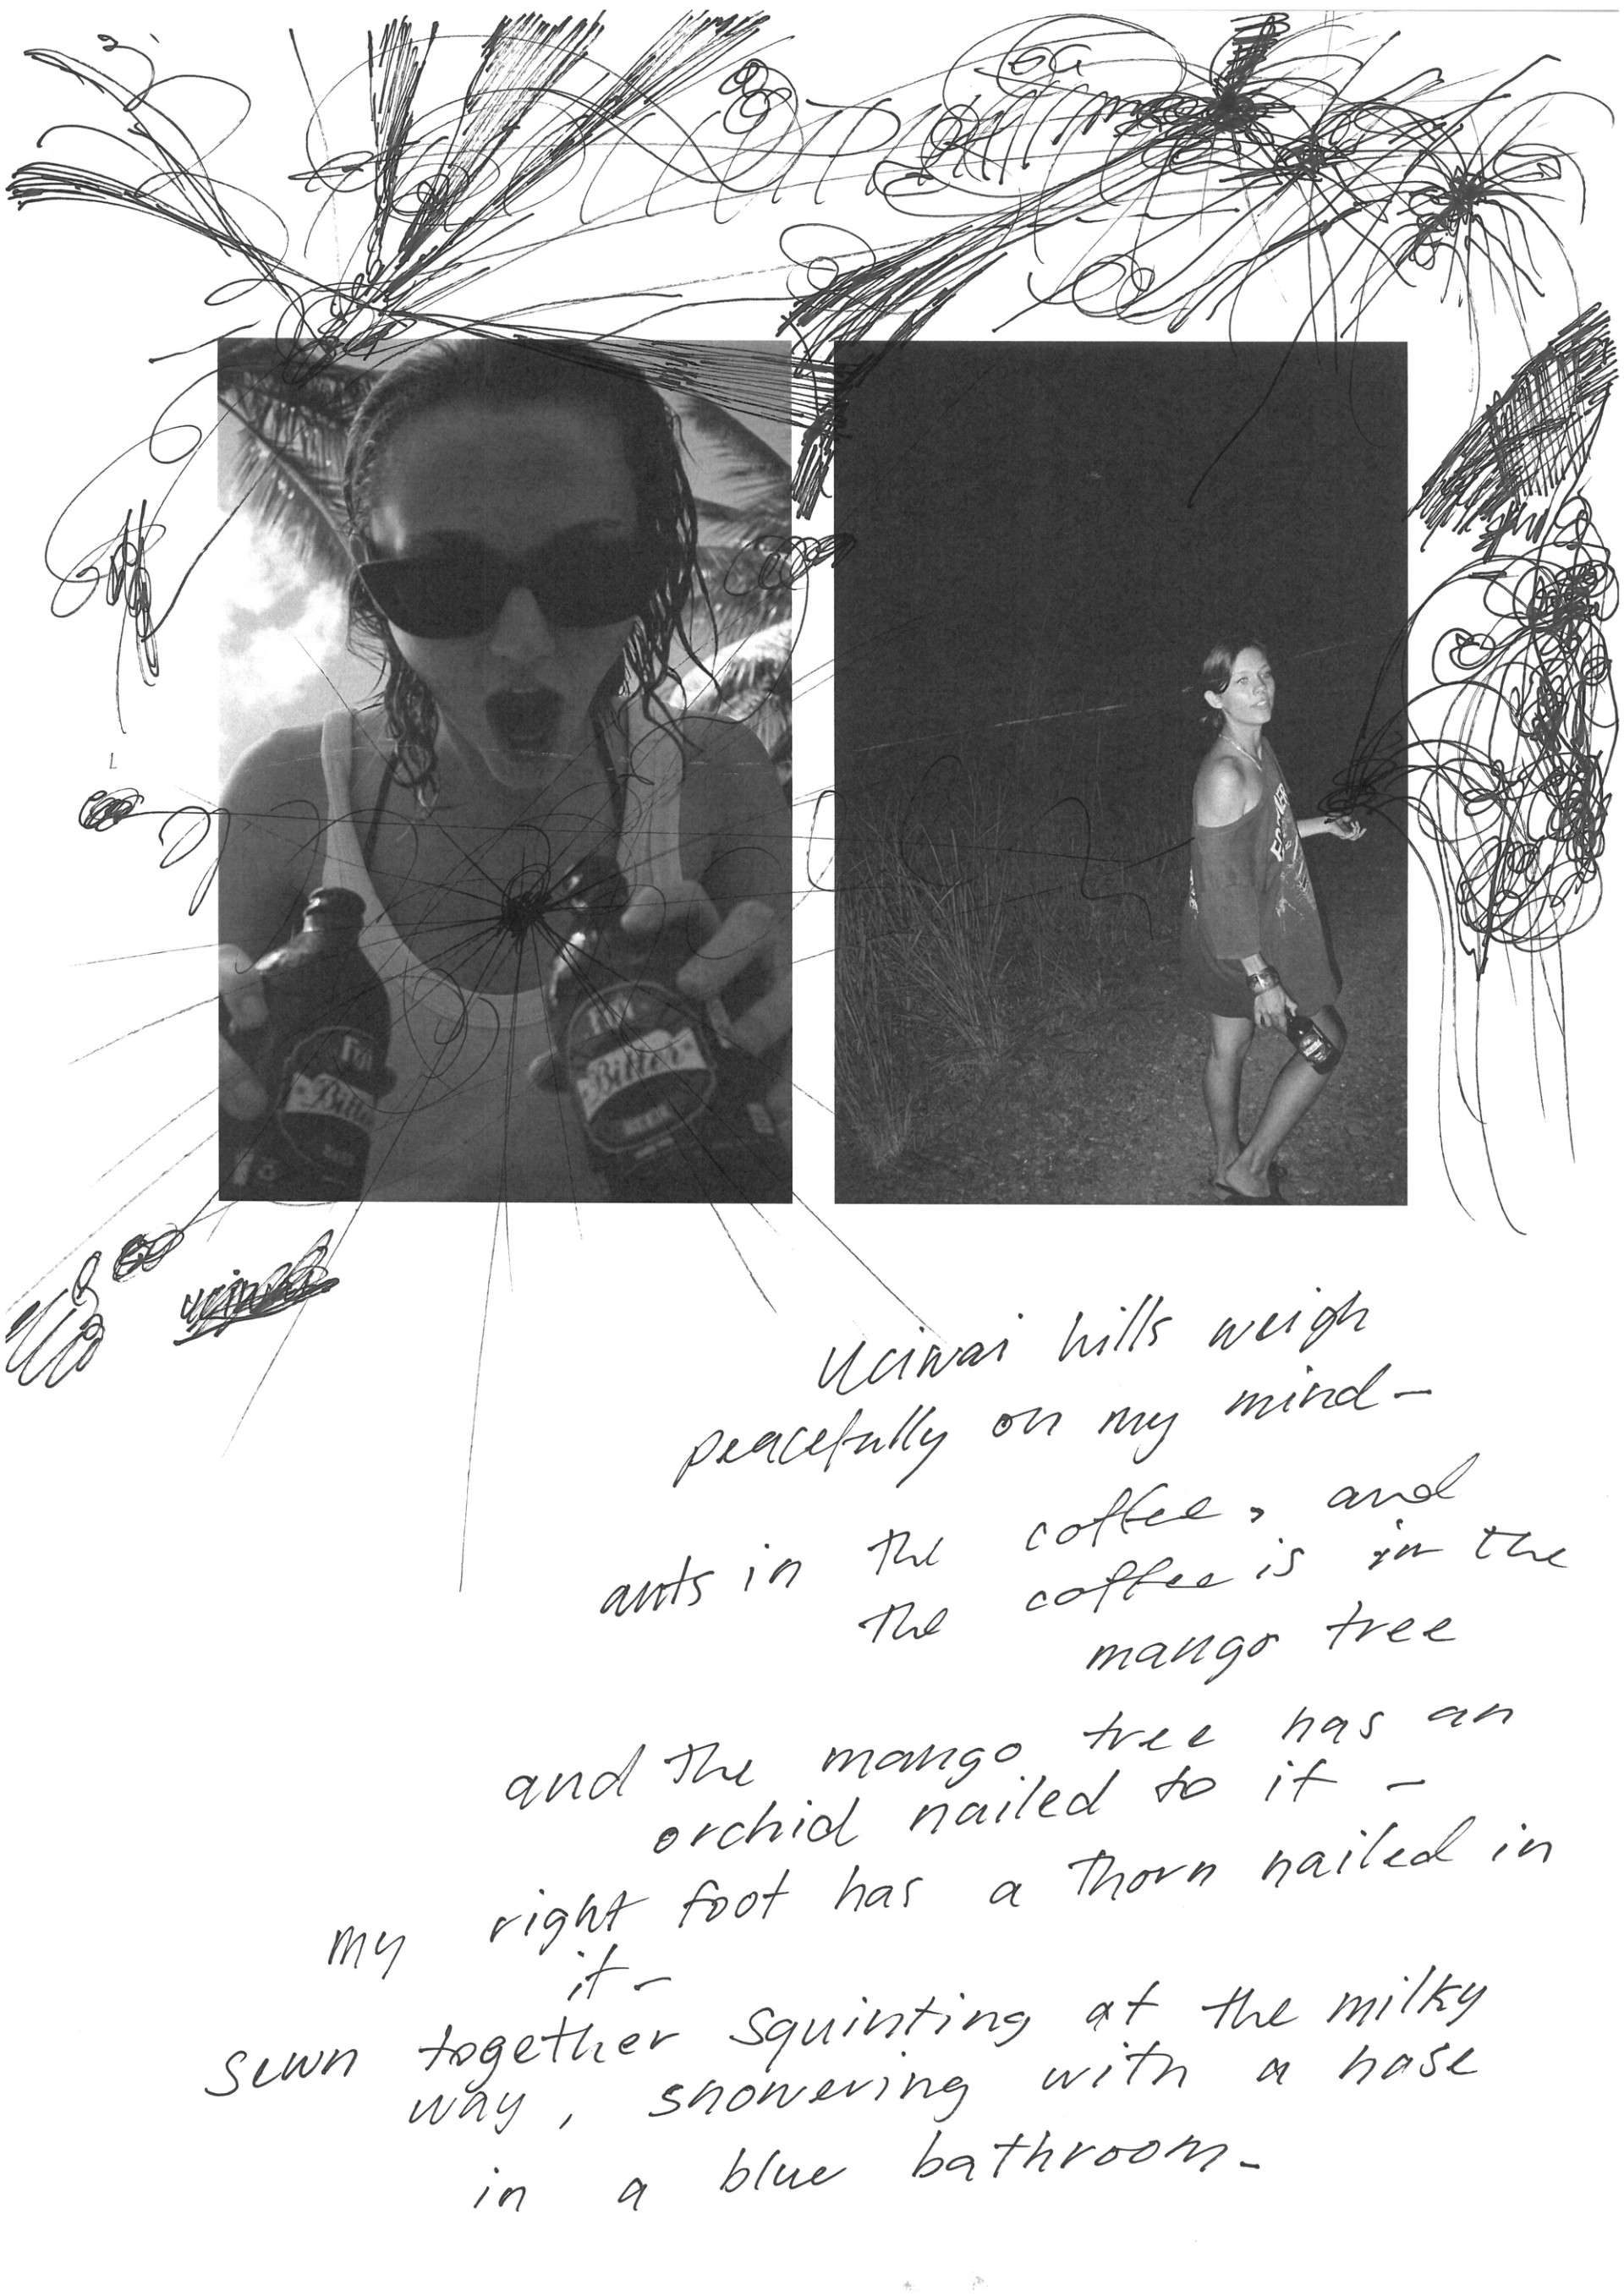 Fiji
Bitter
Fiji
Bitter
Uciwai hills weigh
peacefully on my mind –
ants in the coffee, and
the coffee is in the
mango tree
and the mango tree has an
orchid nailed to it –
my right foot has a thorn nailed in
it –
sewn together squinting at the milky
way, showering with a hose
in a blue bathroom –